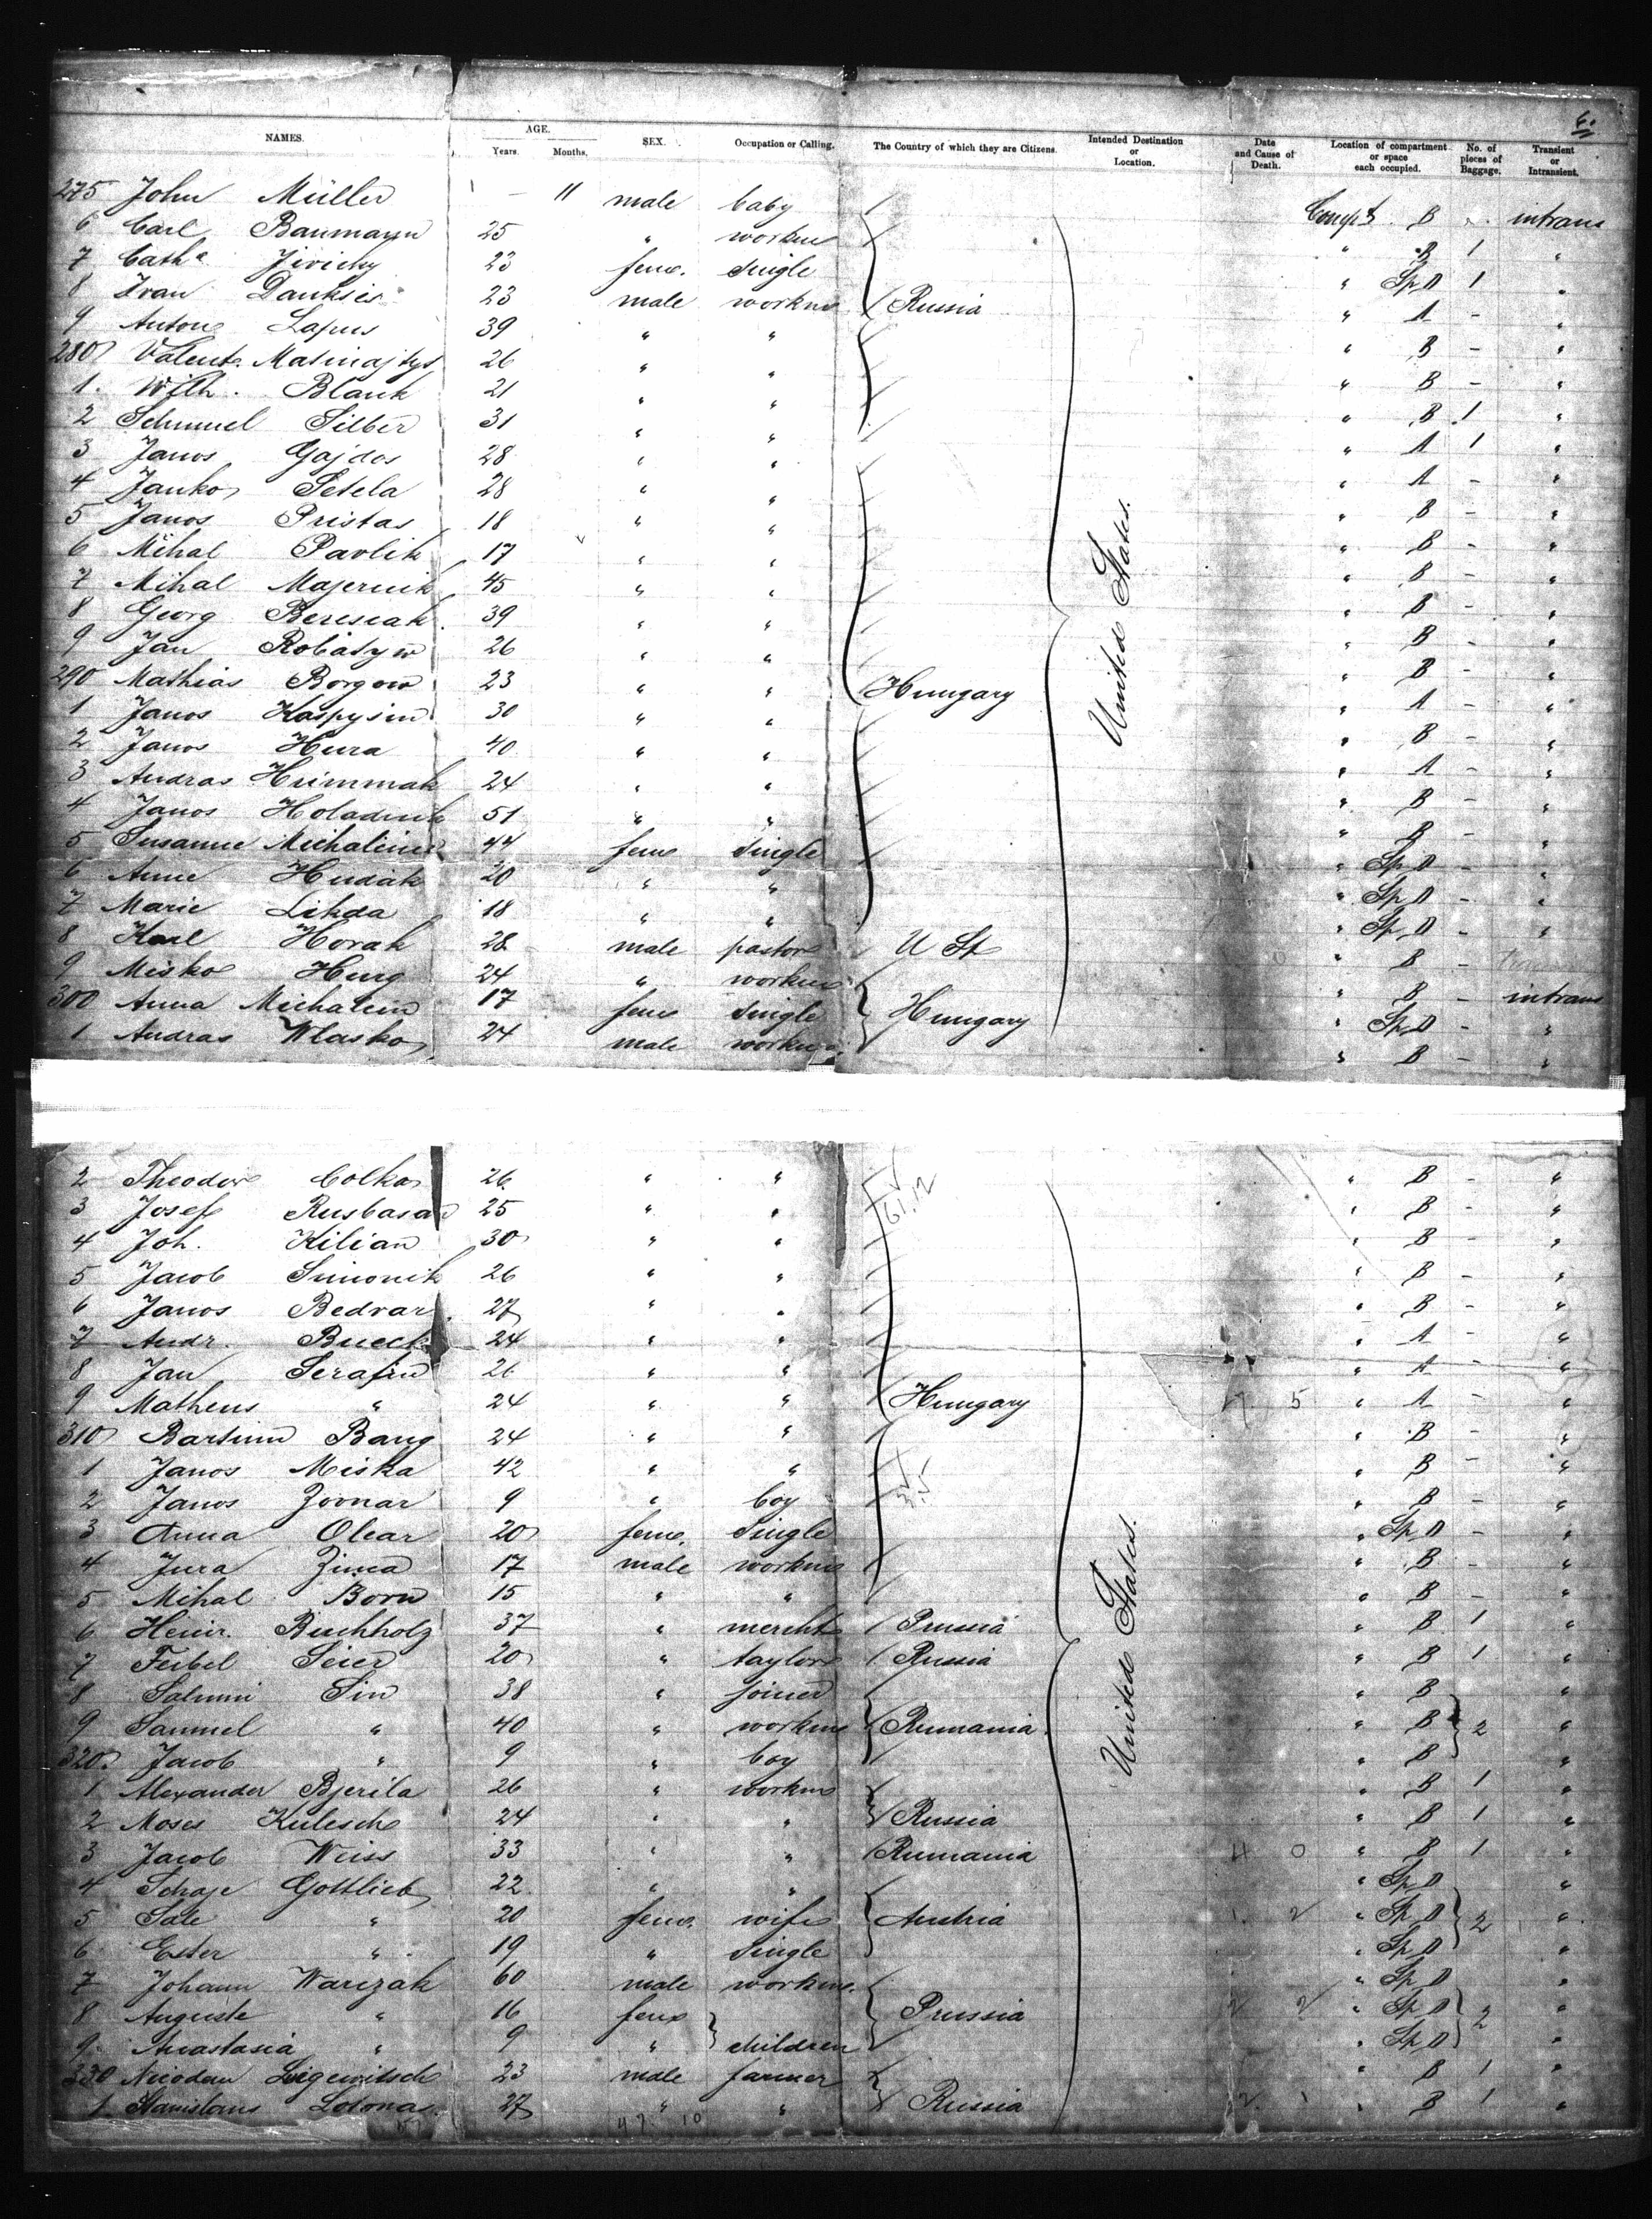 6.
NAMES. AGE. Years. Months. SEX. Occupation or Calling. The Country of which they are Citizens. Intended Destination or Location. Date and Cause of Death. Location of compartment or space each occupied. No. of pieces of Baggage. Transient or Intransient.
275 John Müller - 11 male baby Compt. B intrans
6 Carl Baumann 25 " workm " B 1 "
7 Cathe 23 fem. single " Sp D 1 "
8 Ivan 23 male workm Russia " A - "
9 Anton Lapus 39 " " " B - "
280 Valent. 26 " " " B - "
1. Wilh. Blank 21 " " " B 1 "
2 Schmuel Silber 31 " " " A 1 "
3 Janos Gajdos 28 " " " A - "
4 Janko Setela 28 " " " B - "
5 Janos Pristas 18 " " " B - "
6 Mihal Pavlik 17 " " " B - "
7 Mihal Majernik 45 " " " B - "
8 Georg 39 " " " B - "
9 Jan 26 " " " B - "
290 Mathias Borgow 23 " " Hungary " A - "
1 Janos 30 " " United States. " B - "
2 Janos Hura 40 " " " A - "
3 Andras 24 " " " B - "
4 Janos 51 " " " B - "
5 Susanne 44 fem single " Sp D - "
6 Anne Hudak 20 " " " Sp D - "
7 Marie Likda 18 " " " Sp D - "
8 Karl Horak 28 male pastor U St " B -
9 Misko 24 " workm " B - intrans
300 Anna Michalein 17 fem single Hungary " Sp D - "
1 Andras Wlasko 24 male workm " B - "
2 Theodor Colka 26 " " " B - "
3 Josef 25 " " " B - "
4 Joh. Kilian 30 " " " B - "
5 Jacob Simonik 26 " " " B - "
6 Janos Bednar 27 " " " B - "
7 Andr. 24 " " " A - "
8 Jan Serafin 26 " " " A - "
9 Matheus " 24 " " Hungary 5 " A - "
310 Bang 24 " " " B - "
1 Janos Miska 42 " " " B - "
2 Janos 9 " boy " B - "
3 Anna Olear 20 fem. single " Sp D - "
4 Jura Zima 17 male workm " B - "
5 Mihal Born 15 " " " B - "
6 Heinr. Buchholz 37 " mercht Prussia United States. " B 1 "
7 Feibel Seier 20 " taylor Russia " B 1 "
8 Salumi Sin 38 " joiner " B "
9 Samuel " 40 " workm Rumania " B 2 "
320. Jacob " 9 " boy " B "
1 Alexander Bjerila 26 " workm " B 1 "
2 Moses Kulesch 24 " " Russia " B 1 "
3 Jacob Weiss 33 " " Rumania 4 0 " B 1 "
4 Schaje Gottlieb 22 " " " Sp D "
5 Sale " 20 fem. wife Austria 1 2 " Sp D 2 "
6 Ester " 19 " single " Sp D "
7 Johann Warczak 60 male workm. " Sp D "
8 Auguste " 16 fem children Prussia 2 2 " Sp D 2 "
9. Anastasia " 9 " " Sp D "
330 Nicodem 23 male farmer " B 1 "
1. Stanislaus 27 " " Russia 2 1 " B 1 "
47. 10